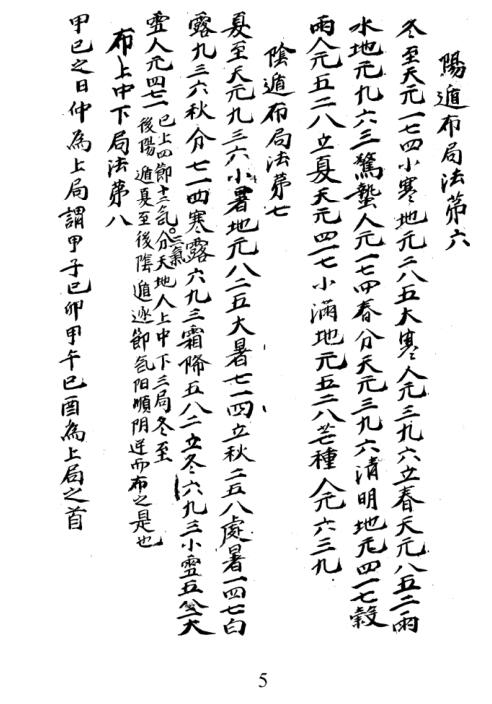 陽遁布局法第六
冬至天元一七四小寒地元二八五大寒人元三九六立春天元八五二雨
水地元九六三驚蟄人元一七四春分天元三九六清明地元四一七穀
雨人元五二八立夏天元四一七小滿地元五二八芒種人元六三九
陰遁布局法第七
夏至天元九三六小暑地元八二五大暑七一四立秋二五八處暑一四七白
露九三六秋分七一四寒露六九三霜降五八二立冬六九三小雪五八二大
雪人元四七一
已上四節十二氣分天地人上中下三局冬至
後陽遁夏至後陰遁逐節氣阳順阴逆而布之是也
布上中下局法第八
甲已之日仲為上局謂甲子已卯甲午已酉為上局之首
5